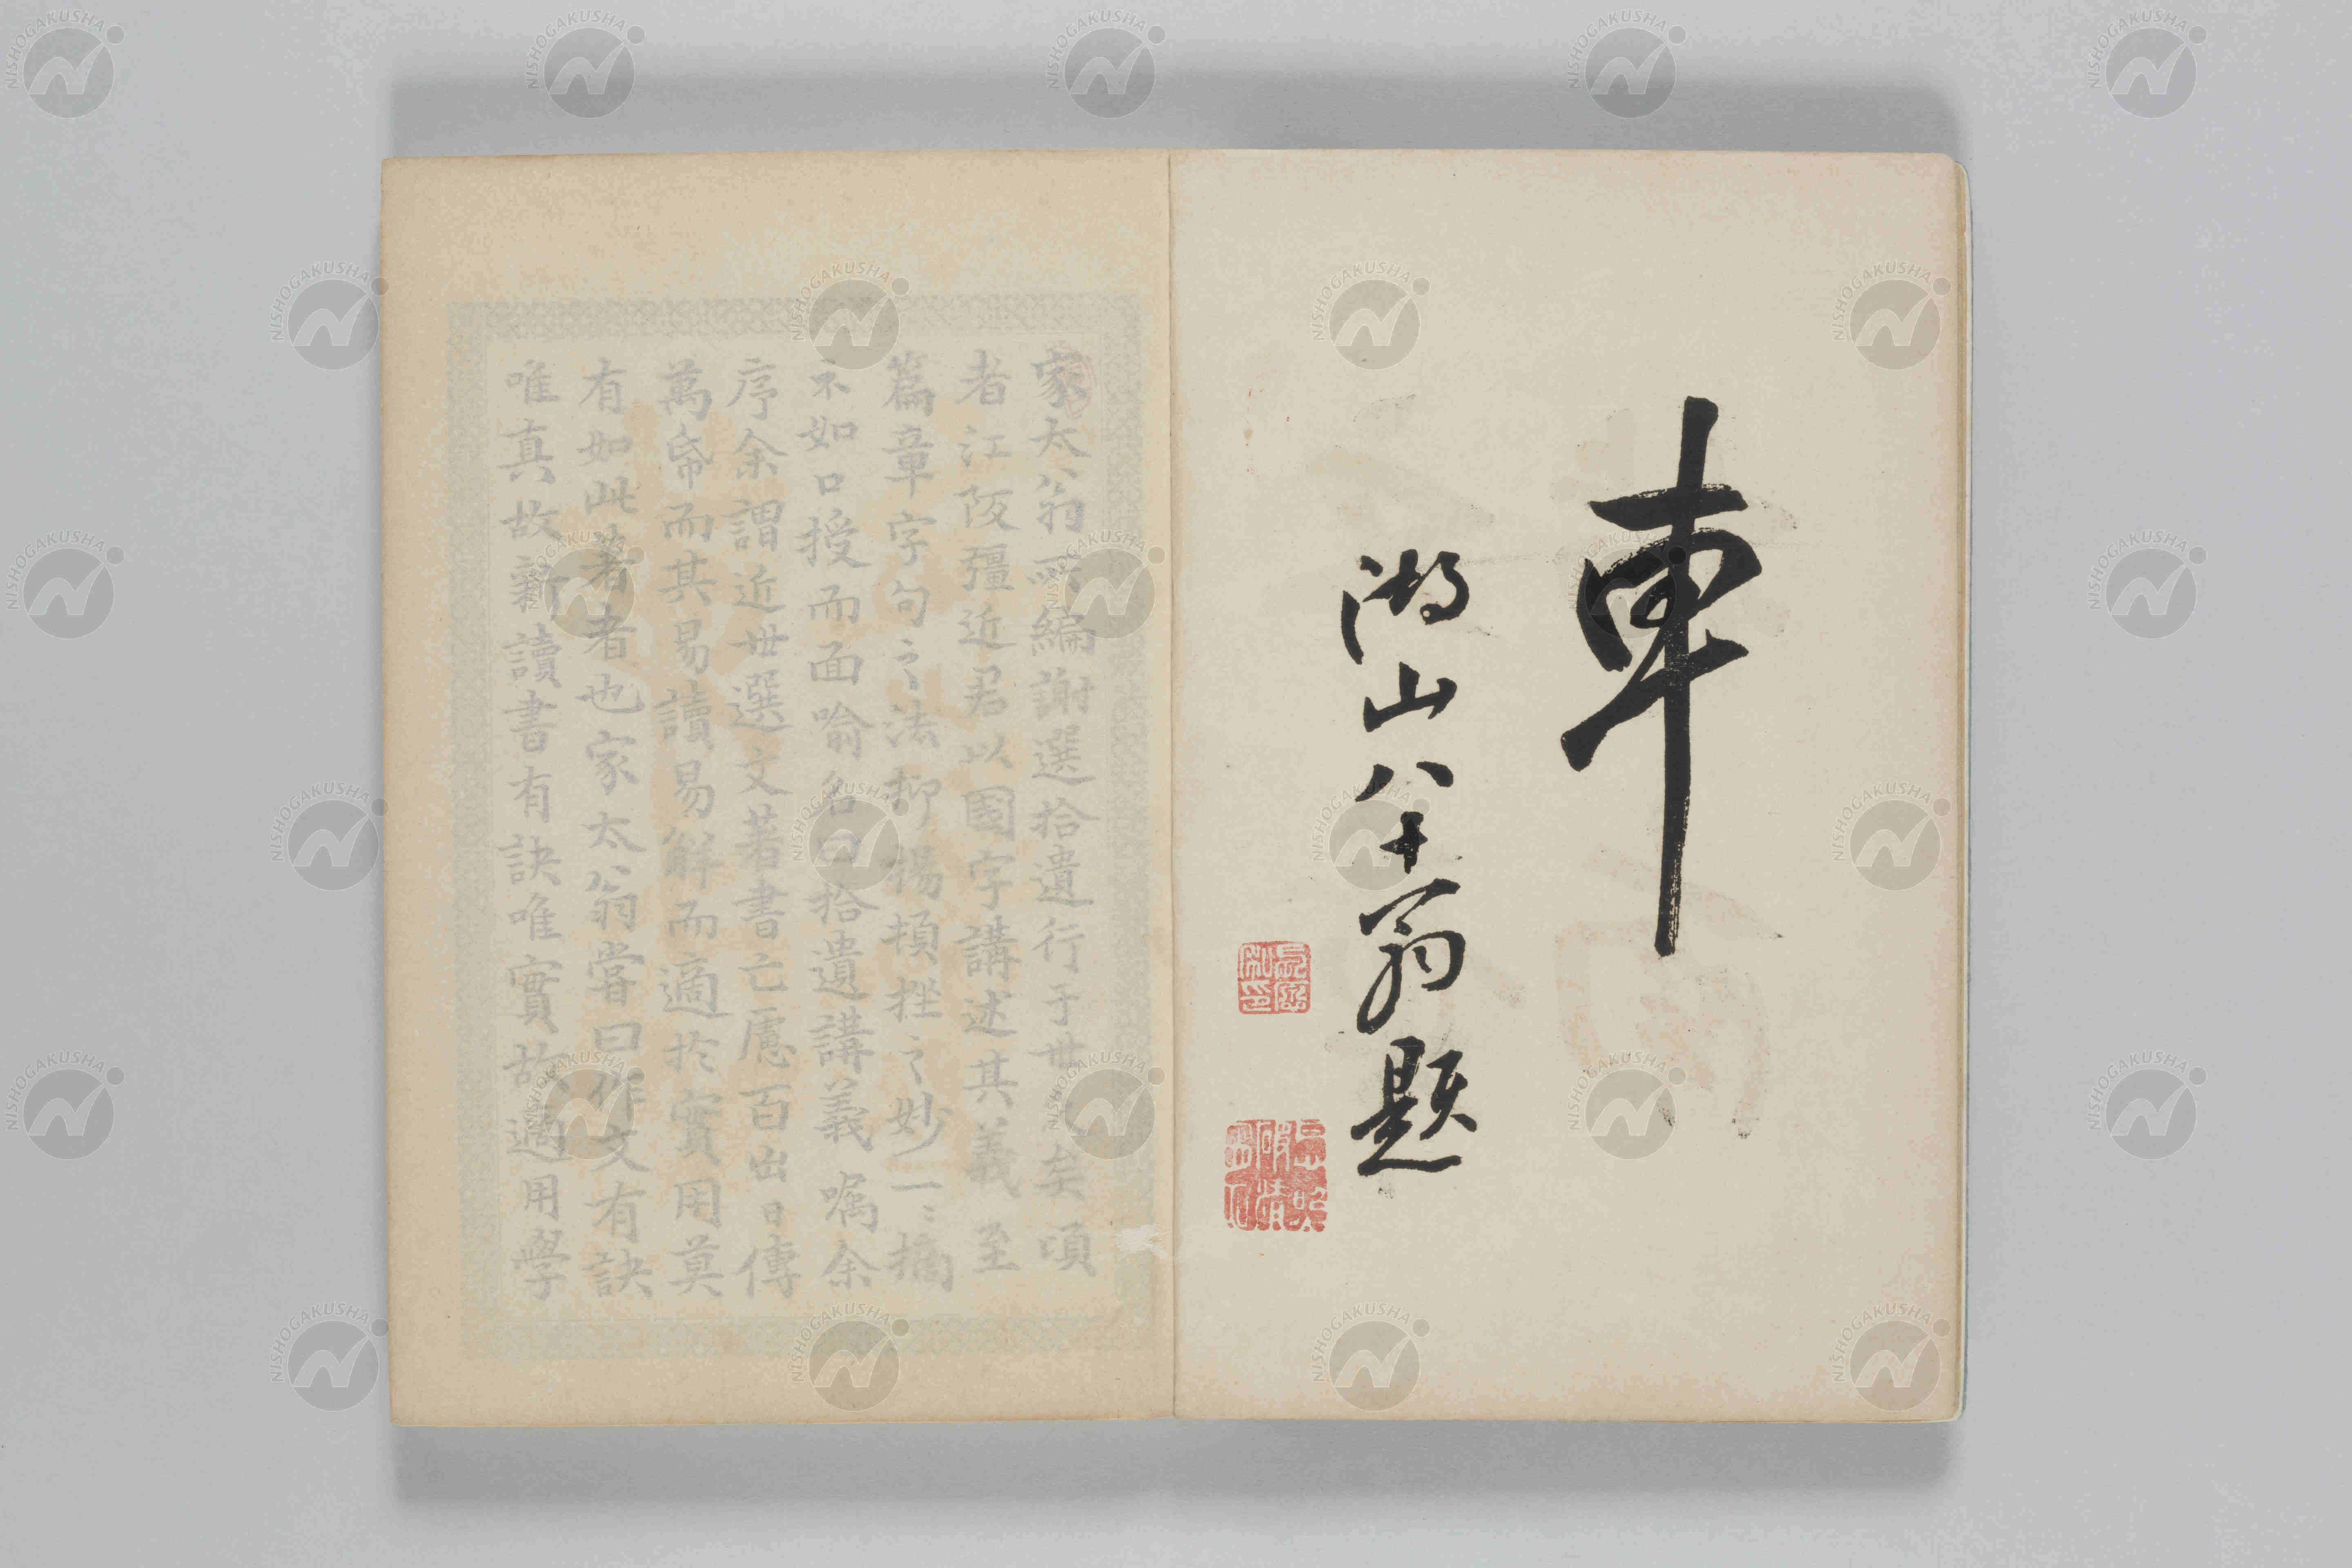 車
湖山八十翁題
家太翁所編謝選拾遺行于世久矣頃
者江阪彊近君以國字講述其義至
篇章字句之法抑揚頓挫之妙一〻摘
不如口授而面喻名曰拾遺講義嘱余
序余謂近世選文著書亡慮百出日傳
萬帋而其易讀易解而適於實用莫
有如此著者也家太翁嘗曰作文有訣
唯真故新讀書有訣唯實故適用學
NISHOGAKUSHA